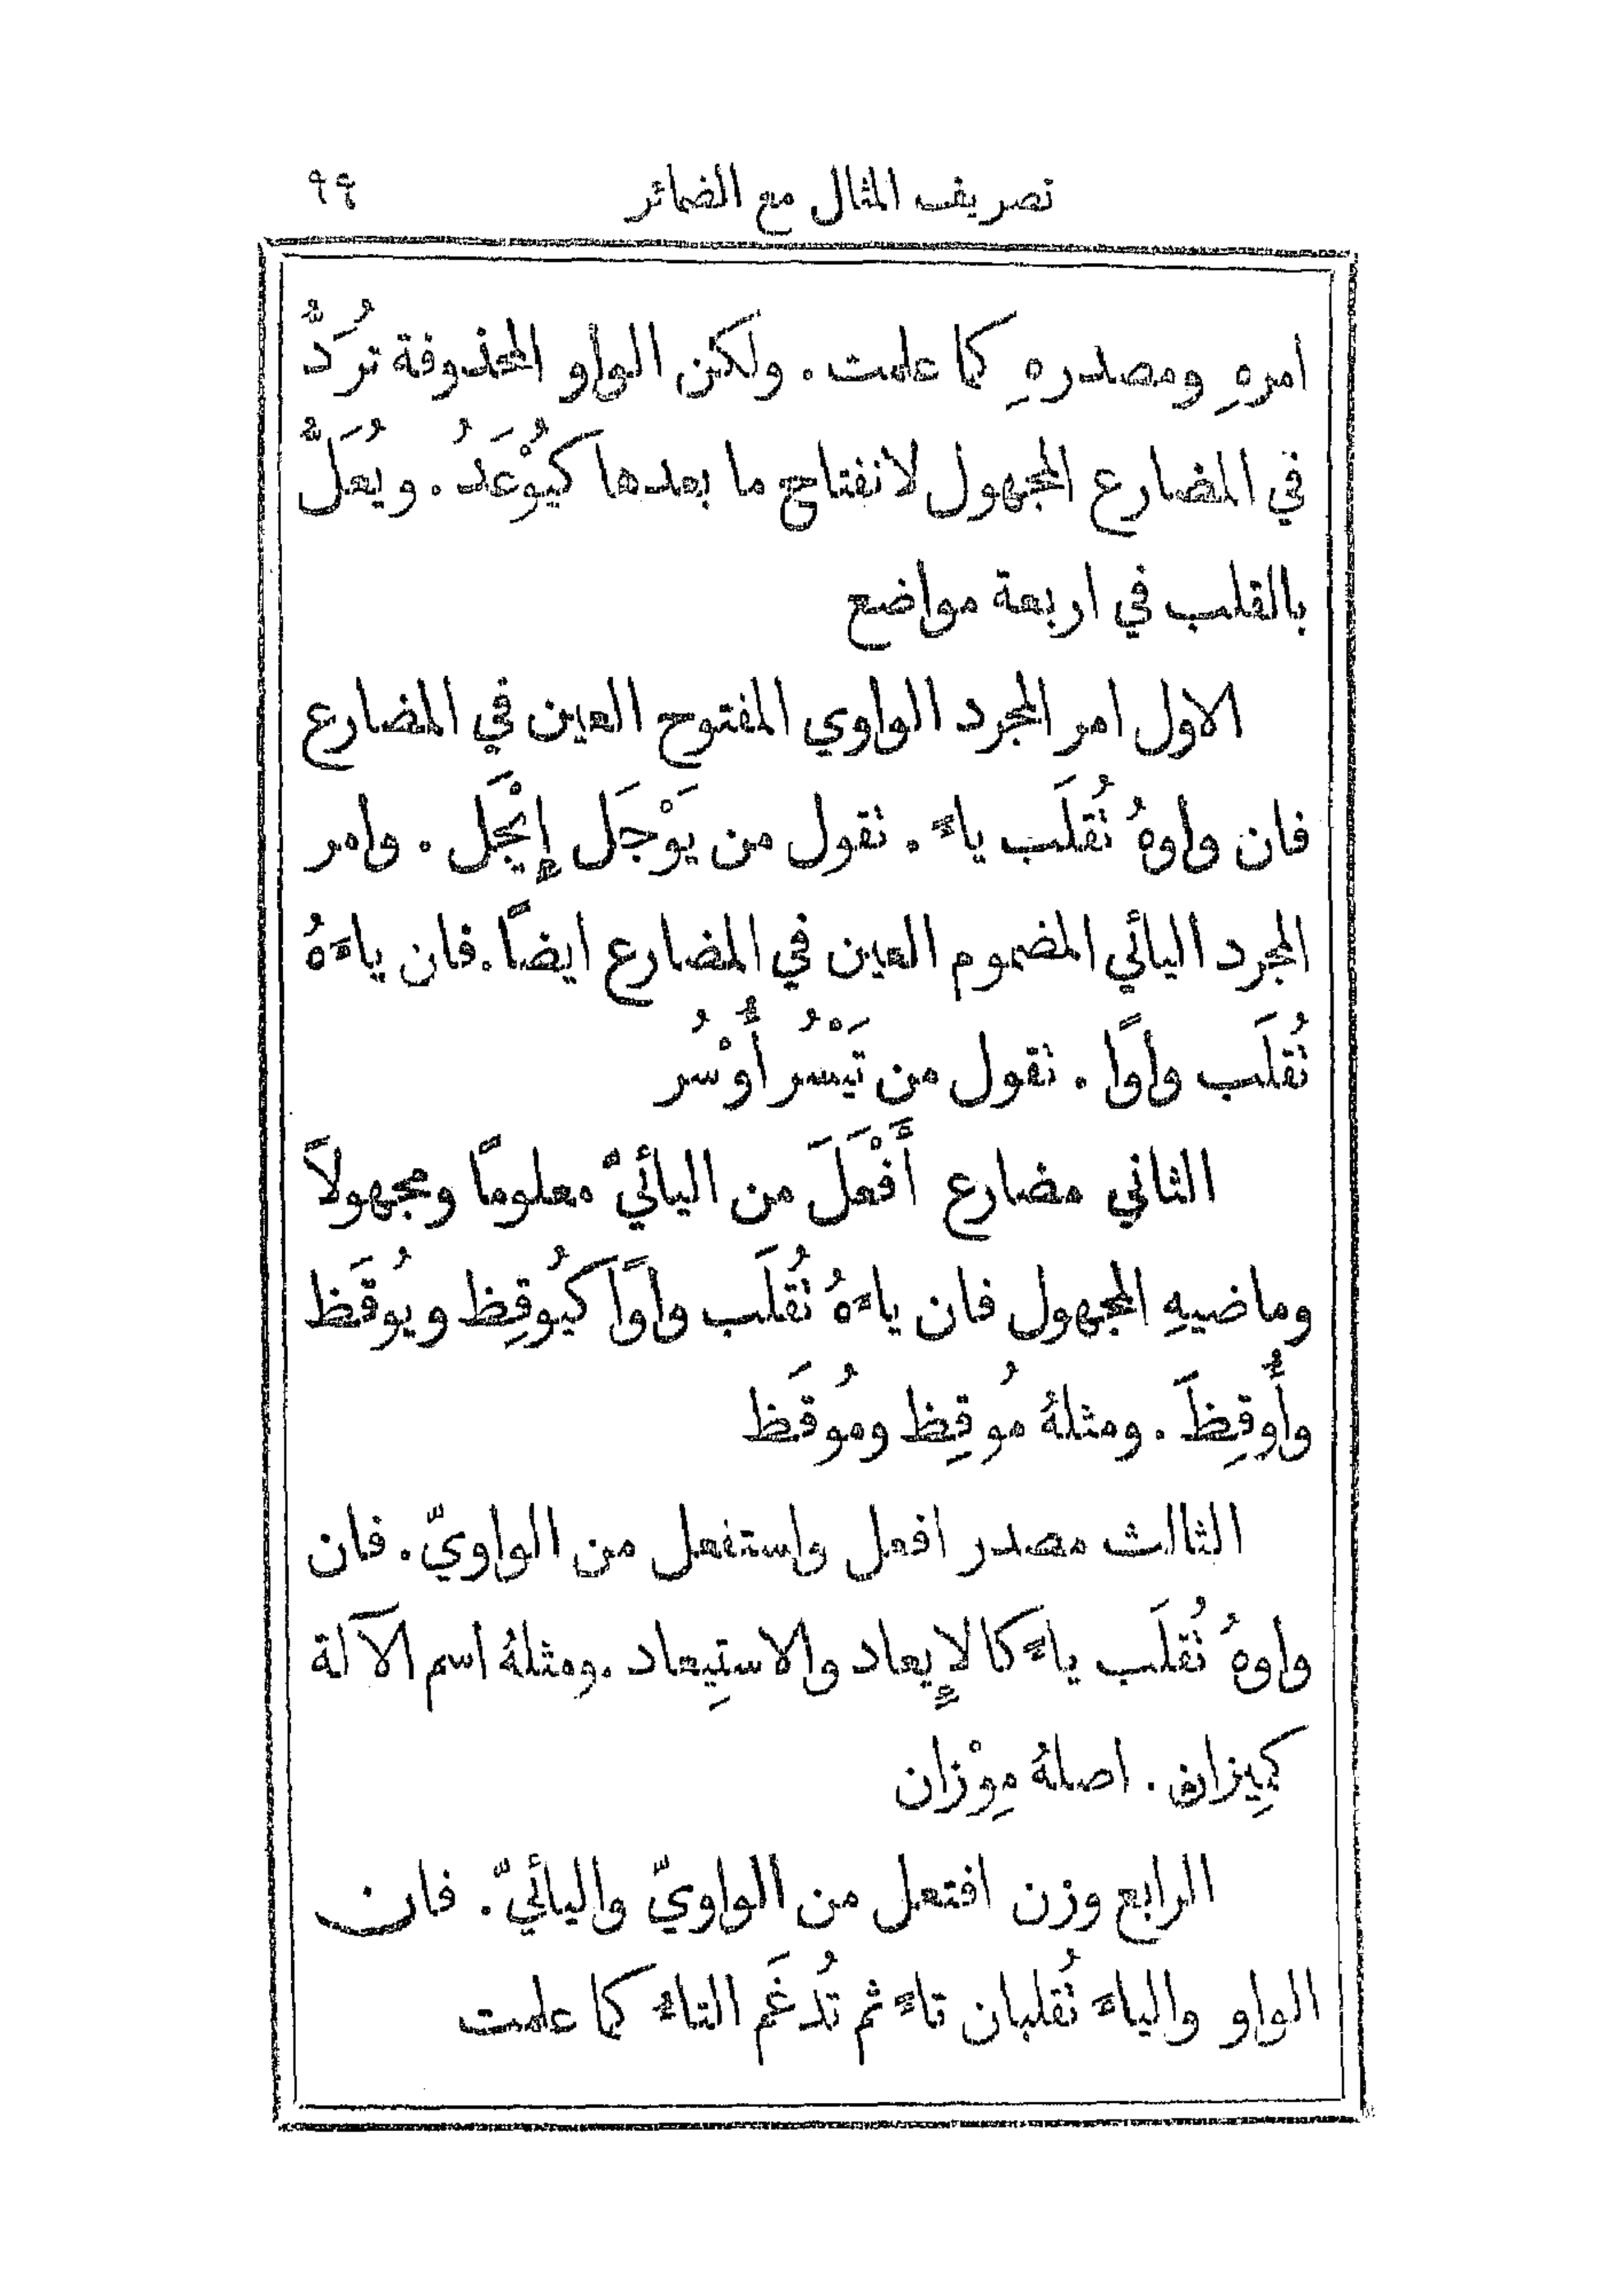 تصريف المثال مع الضمائر ٩٩
امرهِ ومصدرهِ كما علمت. ولكن الواو المحذوفة تُرَدُّ
في المضارع المجهول لانفتاح ما بعدها كيُوْعَدُ. ويُعَلُّ
بالقلب في اربعة مواضع
الاول امر المجرد الواوي المفتوح العين في المضارع
فان واوهُ تُقلَب ياءً. تقول من يَوْجَل إِيْجَل. وامر
المجرد اليائي المضموم العين في المضارع ايضًا. فان ياءَهُ
تُقلَب واوًا. تقول من تَيْسُر أُوْسُر
الثاني مضارع أَفْعَلَ من اليائيّ معلومًا ومجهولاً
وماضيهِ المجهول فان ياءَهُ تُقلَب واوًا كيُوقِظ ويُوقَظ
وأُوقِظَ. ومثلهُ مُوقِظ ومُوقَظ
الثالث مصدر افعل واستفعل من الواويّ. فان
واوهُ تُقلَب ياءً كالإِيعاد والاستِيعاد. ومثلهُ اسم الآلة
كمِيزان. اصلهُ مِوْزان
الرابع وزن افتعل من الواويّ واليائيّ. فان
الواو والياءَ تُقلبان تاءً ثم تُدغَم التاءُ كما علمت